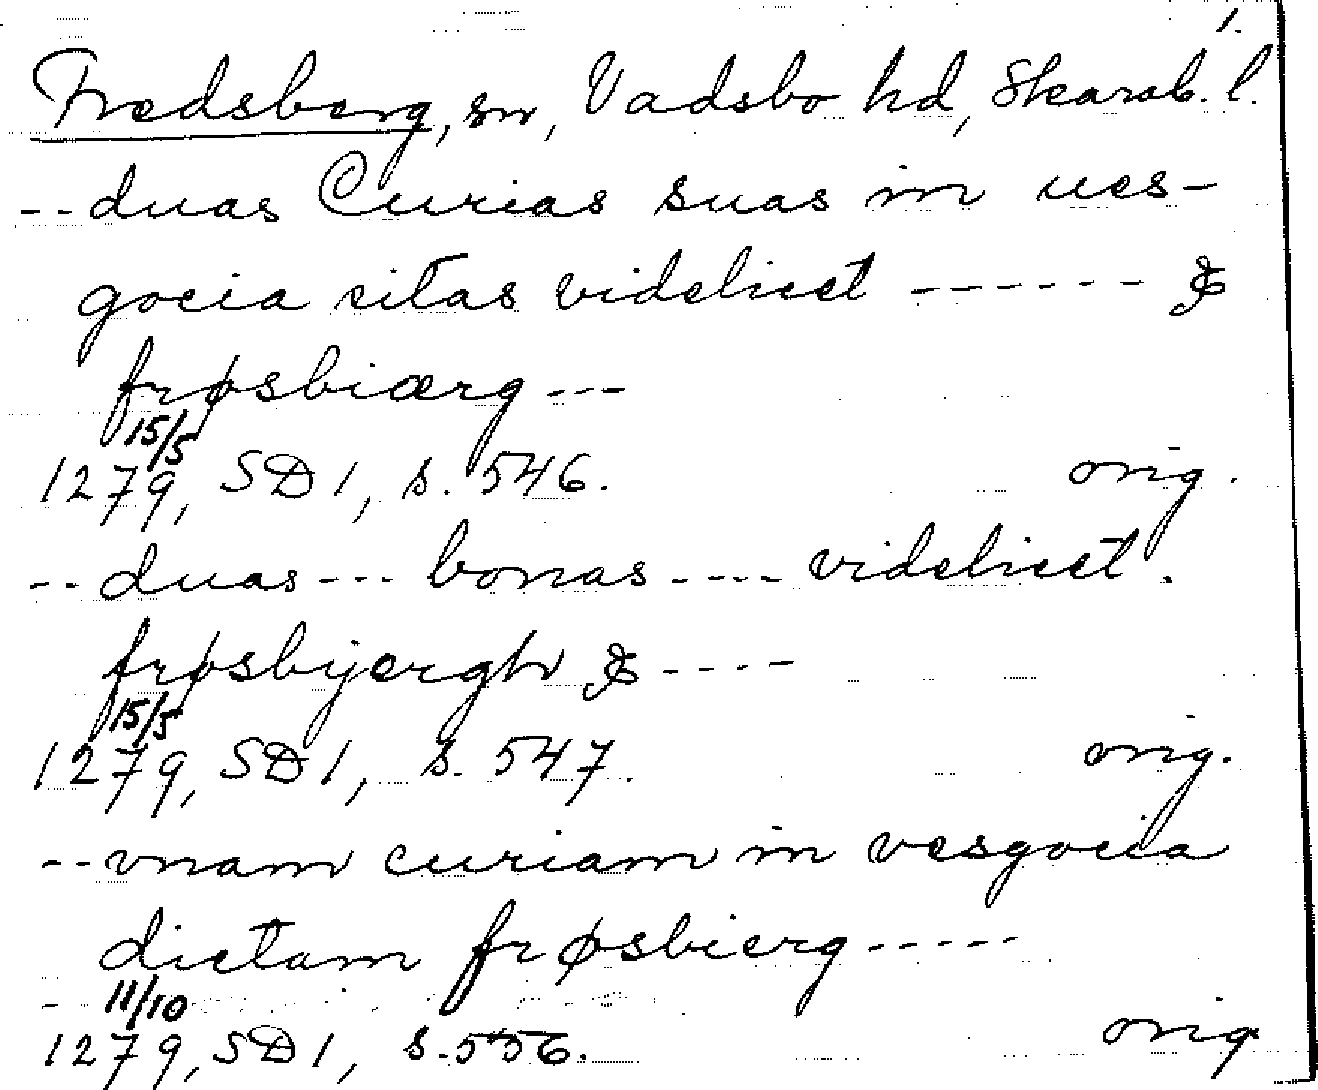 1.
Fredsberg, sn, Vadsbo hd, Skarab. l.
-- duas Curias suas in ues-
gocia sitas videlicet ------ &
frøsbiærg ---
15/5
1279, SD 1, s. 546. orig.
-- duas --- bonas ---- videlicet.
frøsbyærgh & ----
15/5
1279, SD 1, s. 547. orig.
-- vnam curiam in vesgocia
dictam frøsbierg -----
11/10
1279, SD 1, s. 556. orig.